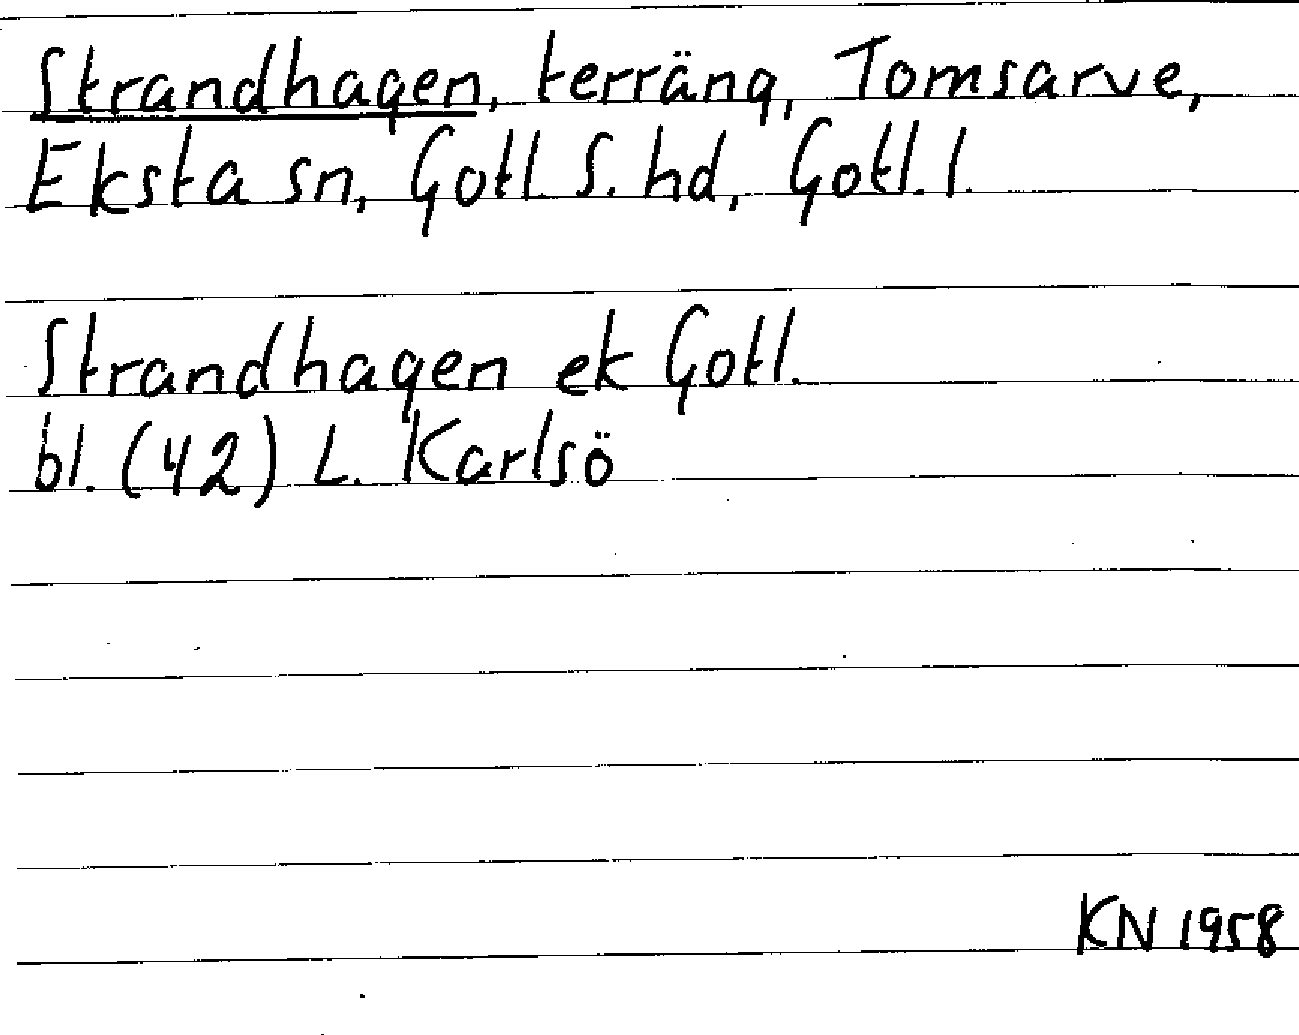 Strandhagen, terräng, Tomsarve,
Eksta sn, Gotl. S. hd, Gotl. l.
Strandhagen ek Gotl.
bl. (42) L. Karlsö
KN 1958